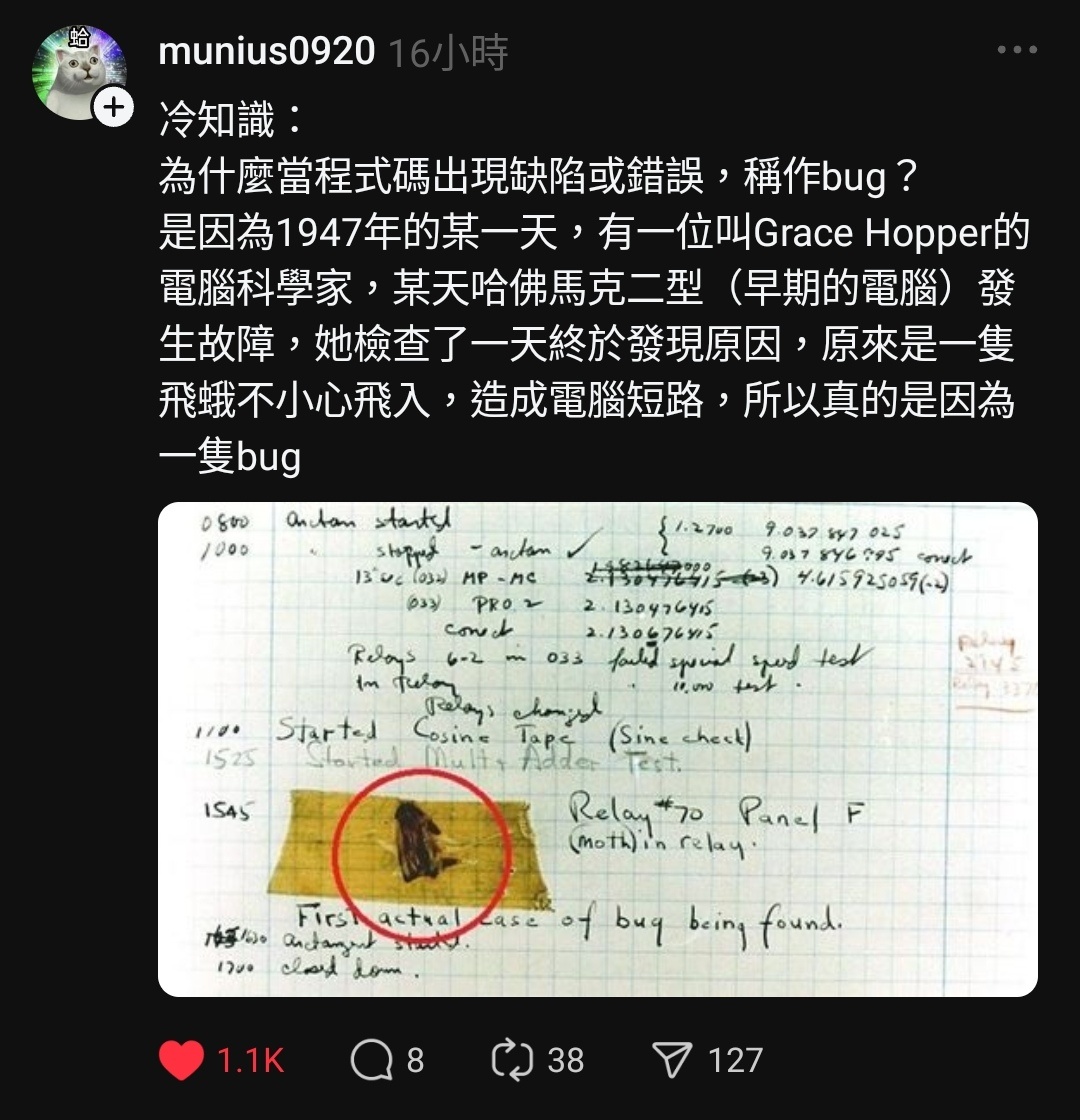 蛤
munius0920 16小時
冷知識：
為什麼當程式碼出現缺陷或錯誤，稱作bug？
是因為1947年的某一天，有一位叫Grace Hopper的
電腦科學家，某天哈佛馬克二型（早期的電腦）發
生故障，她檢查了一天終於發現原因，原來是一隻
飛蛾不小心飛入，造成電腦短路，所以真的是因為
一隻bug
0800 antan started { 1.2700 9.037 847 025
1000 " stopped - antan ✓ 9.037 846 795 conect
13"uc (032) MP - MC 2.130476415 (-3) 4.615925059(-2)
(033) PRO 2 2.130476415
conect 2.130676415
Relays 6-2 in 033 failed special speed test
In Relay " 10,000 test .
Relays changed
1100 Started Cosine Tape (Sine check)
1525 Started Mult + Adder Test.
1545 Relay #70 Panel F
(moth) in relay.
First actual case of bug being found.
1630 antangent started.
1700 closed down.
1.1K 8 38 127